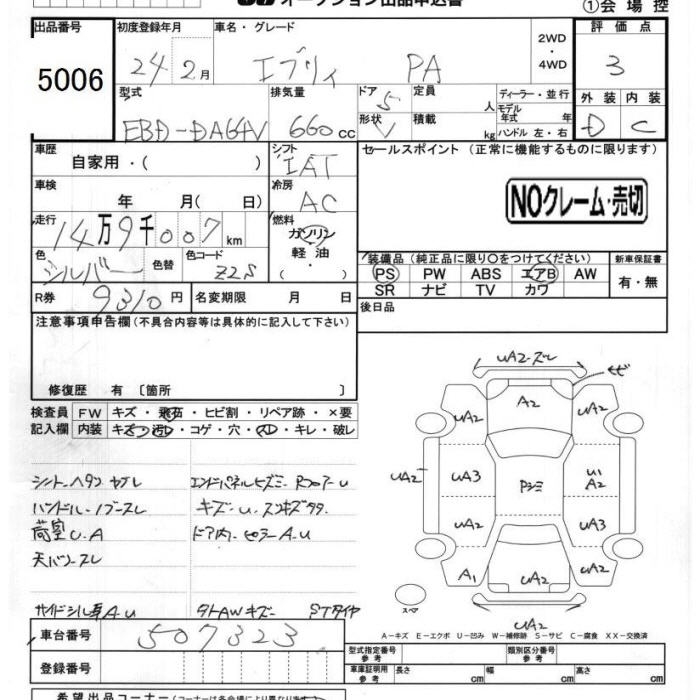 オークション出品申込書
①会場控
出品番号 初度登録年月 車名・グレード 評価点
5006 24年2月 エブリィ PA 2WD・4WD 3
型式 排気量 ドア 定員 ディーラー・並行 外装 内装
EBD-DA64V 660cc 5 人 モデル年式 年 D C
形状 V 積載 kg ハンドル 左・右
車歴 シフト セールスポイント (正常に機能するものに限ります)
自家用・( ) IAT
車検 冷房
年 月( 日) AC
NOクレーム・売切
走行 燃料
14万9千007km ガソリン
軽油
( ・ )
色 色替 色コード
シルバー Z2S
装備品(純正品に限り○をつけてください) 新車保証書
PS PW ABS エアB AW 有・無
SR ナビ TV カワ
R券 9310円 名変期限 月 日
後日品
注意事項申告欄(不具合内容等は具体的に記入して下さい)
修復歴 有〔箇所 〕
検査員 FW キズ・飛石・ヒビ割・リペア跡・×要
記入欄 内装 キズ・汚レ・コゲ・穴・スレ・キレ・破レ
シート・ヘタン ヤブレ
ハンドル・ノブスレ キズ・U.
荷室U.A ドア内・ピラーA.U
A.U キズ STタイヤ
UA2-ズレ
ヒビ
A2
UA2 UA2
UA2 UA3 Pシミ U1
A2
UA2 UA3
A1 UA2 UA2
スペア
UA2
A-キズ E-エクボ U-凹み W-補修跡 S-サビ C-腐食 XX-交換済
車台番号 507323
登録番号
型式指定番号 参考 類別区分番号 参考
車庫証明用 参考 長さ cm 幅 cm 高さ cm
希望出品コーナー